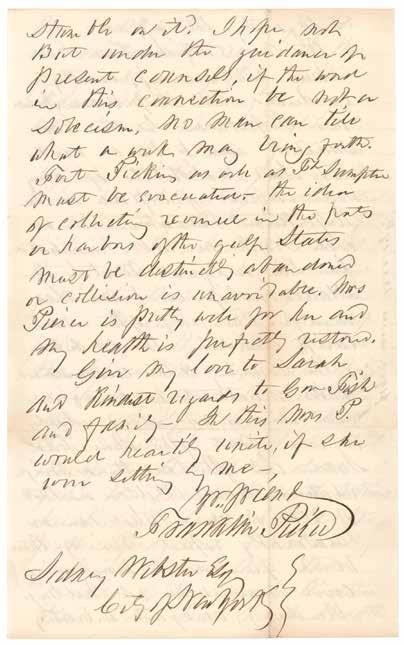 stumble on it? I hope not
But under the guidance of
present counsels, if the word
in this connection be not a
solecism, no man can tell
what a week may bring forth.
Fort Pickens as well as Ft. Sumpter
must be evacuated - the idea
of collecting revenue in the ports
or harbors of the gulf States
must be distinctly abandoned
or collision is unavoidable. Mrs
Pierce is pretty well for her and
my health is perfectly restored.
Give my love to Sarah
and kindest regards to Gov Fish
and family - In this Mrs P.
would heartily unite, if she
were sitting by me -
Yr. friend
Franklin Pierce
Sidney Webster Esq
City of New York